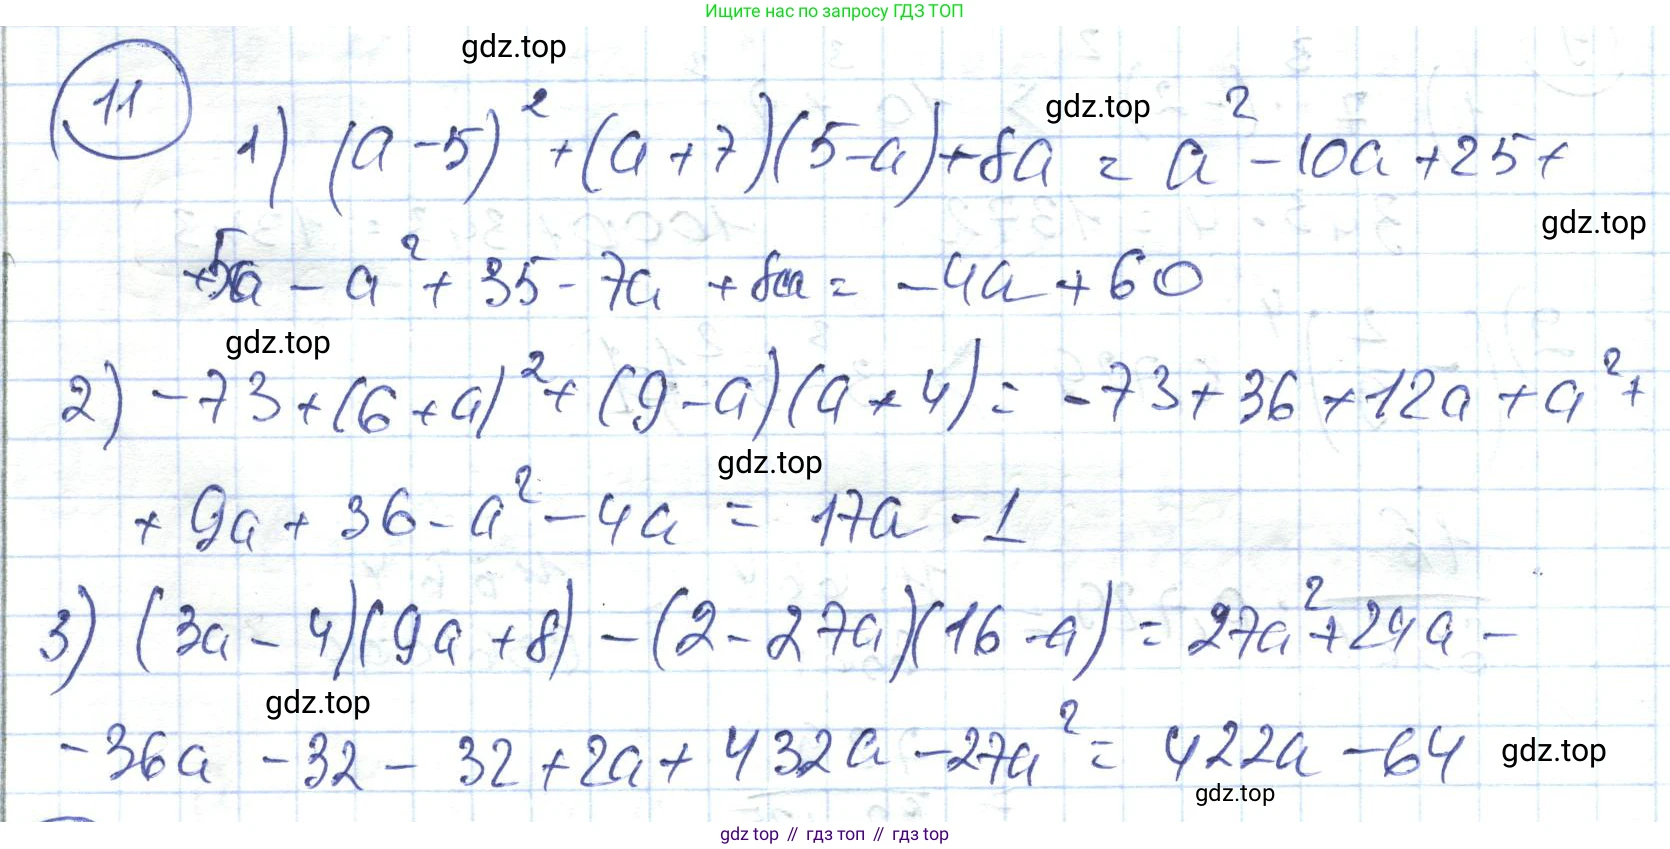 Ищите нас по запросу ГДЗ ТОП
gdz.top
11
gdz.top
1) (a-5)² + (a+7)(5-a)+8a = a² - 10a + 25 +
gdz.top
+5a - a² + 35 - 7a + 8a = -4a + 60
gdz.top
2) -73 + (6+a)² + (9-a)(a+4) = -73 + 36 + 12a + a² +
gdz.top
+ 9a + 36 - a² - 4a = 17a - 1
3) (3a-4)(9a+8) - (2-27a)(16-a) = 27a² + 24a -
gdz.top
-36a - 32 - 32 + 2a + 432a - 27a² = 422a - 64
gdz.top
gdz.top
gdz top // гдз топ // гдз top